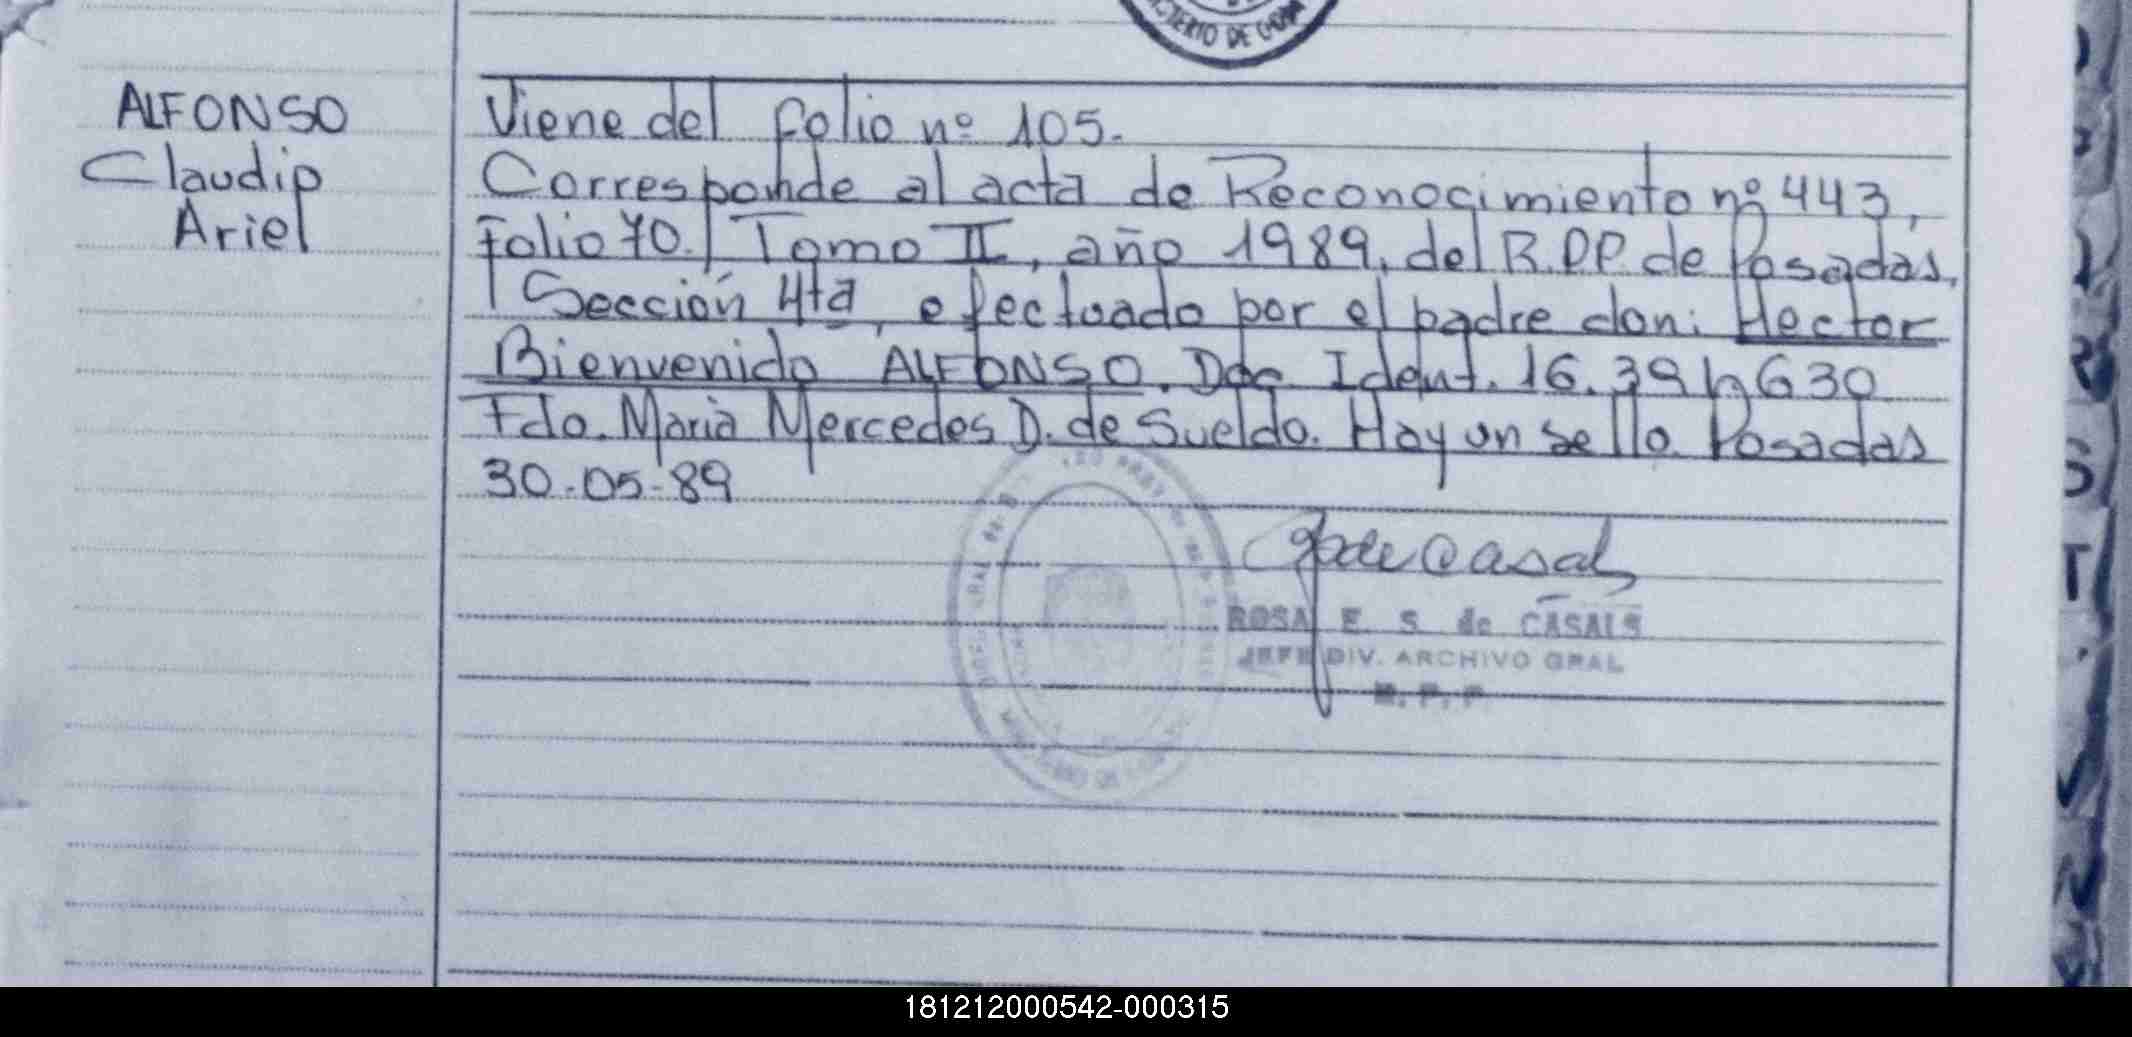 ISTERIO DE GOBI
ALFONSO
Claudio
Ariel
Viene del folio nº 105.
Corresponde al acta de Reconocimiento nº 443,
Folio 70. Tomo II, año 1989, del R.P.P. de Posadas,
Sección 4ta, efectuado por el padre don: Hector
Bienvenido ALFONSO. Doc. Ident. 16.391.630
Fdo. Maria Mercedes D. de Sueldo. Hay un sello Posadas
30-05-89
ROSA E. S. de CASALS
JEFE DIV. ARCHIVO GRAL
R. P. P.
181212000542-000315